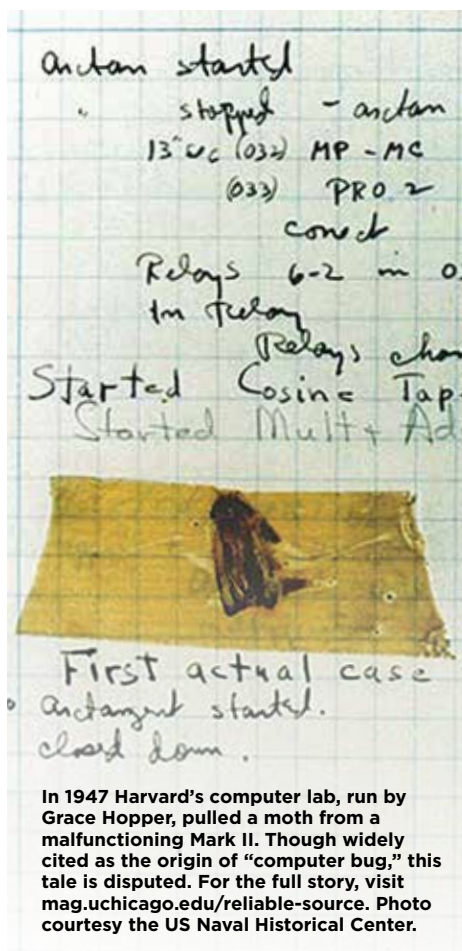 arctan started
" stopped - arctan
13" UC (032) MP - MC
(033) PRO 2
conect
Relays 6-2 in 0.
In Relay
Relays chan
Started Cosine Tap
Started Mult + Ad
First actual case
arctangent started.
closed down.
In 1947 Harvard's computer lab, run by
Grace Hopper, pulled a moth from a
malfunctioning Mark II. Though widely
cited as the origin of “computer bug,” this
tale is disputed. For the full story, visit
mag.uchicago.edu/reliable-source. Photo
courtesy the US Naval Historical Center.